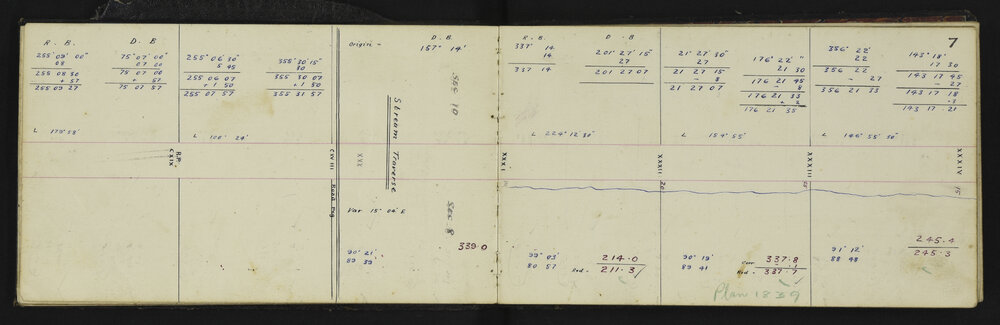 R. B.
D. B
255° 09' 00"
08
255 08 30
+ 57
255 09 27
75° 07' 00"
07 00
75 07 00
+ 57
75 07 57
L 179° 58'
R.P.
CXIX
255° 06' 30"
5 45
255 06 07
+ 1 50
255 07 57
355° 30' 15"
30
355 30 07
+ 1 50
355 31 57
CXVIII
Road Peg.
Origin =
D. B.
157° 14'
SEC 10
Stream Traverse
XXX
Var 15° 04' E
SEC 8
339.0
90° 21'
89 39
R. B.
D. B
337° 14
14
337 14
201° 27' 15"
27
201 27 07
L 224° 12 30"
XXXI
99° 03'
80 57
214.0
Red. 211.3
21° 27' 30"
27
21 27 15
- 8
21 27 07
176° 22' "
21 30
176 21 45
- 8
176 21 33
+ 2
176 21 35
L 154° 55'
XXXII
20
90° 19'
89 41
Corr 337.8
Red. 337.7
Plan 1839
356° 22'
22
356 22
- 27
356 21 33
7
143° 18'
17 30
143 17 45
- 27
143 17 18
.3
143 17 21
L 146° 55 30"
XXXIII
XXXIV
15
91° 12'
88 48
245.4
245.3